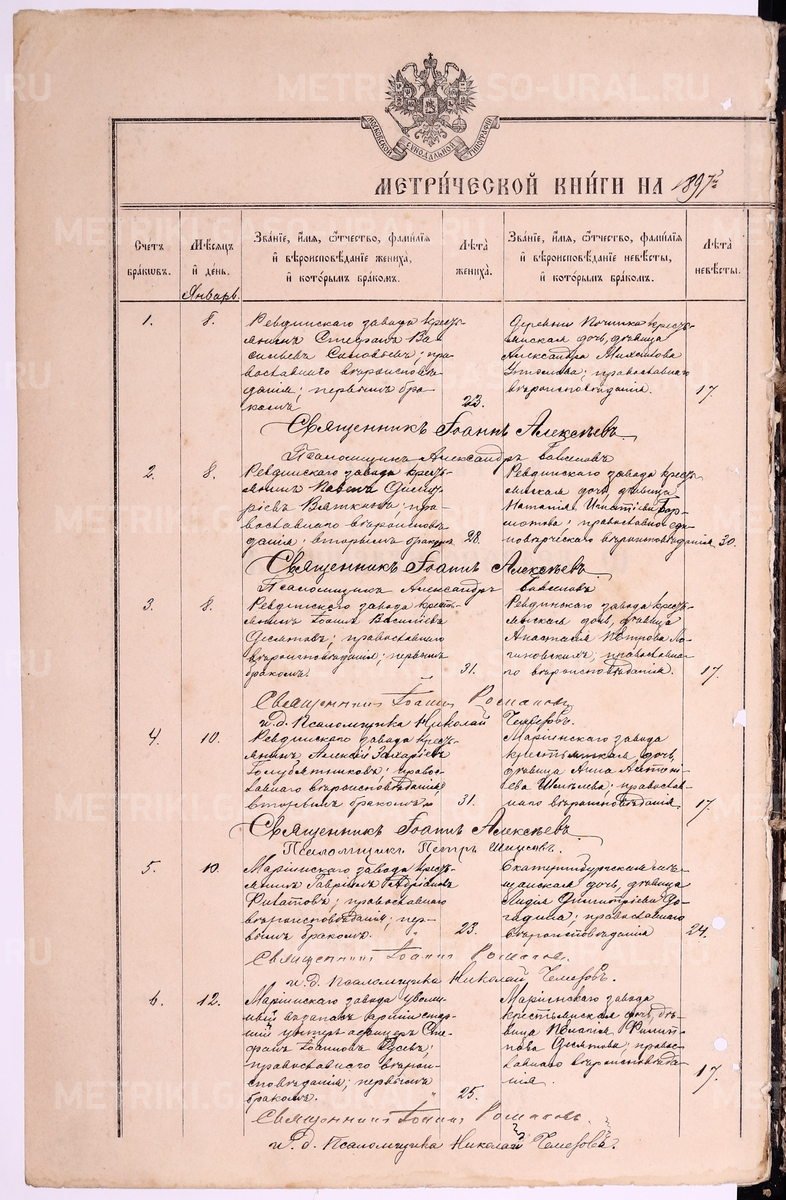 МОСКОВСКОЙ СУНОДАЛЬНОЙ ТИПОГРАФІИ
МЕТРИ́ЧЕСКОЙ КНИ́ГИ НА 1897й
Счетъ бра́кωвъ.
Мѣсяцъ и҆ де́нь.
Зва́нїе, и҆́мя, ѻ҆́тчество, фами́лїя и҆ вѣроисповѣ́данїе жениха̀, и҆ кото́рымъ бра́комъ.
Лѣ́та жениха̀.
Зва́нїе, и҆́мя, ѻ҆́тчество, фами́лїя и҆ вѣроисповѣ́данїе невѣ́сты, и҆ кото́рымъ бра́комъ.
Лѣ́та невѣ́сты.
Январь
1.
8.
Ревдинскаго завода кресть-
янинъ Стефанъ Ва-
сильевъ; пра-
вославнаго вѣроисповѣ-
данія; первымъ бра-
комъ
23.
Деревни Починка кресть-
янская дочь, дѣвица
Александра
православнаго
вѣроисповѣданія.
17.
Священникъ Іоаннъ Алексѣевъ
Псаломщикъ Александръ
2.
8.
Ревдинскаго завода кресть-
янинъ Павелъ Димит-
ріевъ Вяткинъ; пра-
вославнаго вѣроисповѣ-
данія; вторымъ бракомъ
28.
Ревдинскаго завода кресть-
янская дочь, дѣвица
Наталія
православно еди-
новѣрческаго вѣроисповѣданія
30.
Священникъ Іоаннъ Алексѣевъ.
Псаломщикъ Александръ
3.
8.
Ревдинскаго завода кресть-
янинъ Іоаннъ Васильевъ
православнаго
вѣроисповѣданія; первымъ
бракомъ.
31.
Ревдинскаго завода кресть-
янская дочь, дѣвица
Анастасія Петрова Ло-
гиновскихъ; православна-
го вѣроисповѣданія.
17.
Священникъ Іоаннъ
и. д. Псаломщика Николай
4.
10.
Ревдинскаго завода кресть-
янинъ Алексій Захаріевъ
Голубятниковъ; право-
славнаго вѣроисповѣданія;
вторымъ бракомъ
31.
Маріинскаго завода
крестьянская дочь,
дѣвица Анна Антоні-
ева православ-
наго вѣроисповѣданія.
17.
Священникъ Іоаннъ Алексѣевъ.
Псаломщикъ Петръ
5.
10.
Маріинскаго завода кресть-
янинъ Гавріилъ
православнаго
вѣроисповѣданія; пер-
вымъ бракомъ.
23.
Екатеринбургская мѣ-
щанская дочь, дѣвица
Лидія Димитріева
православнаго
вѣроисповѣданія
24.
Священникъ Іоаннъ
и. д. Псаломщика Николай
6.
12.
Маріинскаго завода уволен-
ный въ запасъ арміи стар-
шій унтеръ-офицеръ Сте-
фанъ Іоанновъ
православнаго вѣрои-
сповѣданія; первымъ
бракомъ.
25.
Маріинскаго завода
крестьянская дочь, дѣ-
вица Филип-
пова православ-
славнаго вѣроисповѣда-
нія.
17.
Священникъ Іоаннъ
и. д. Псаломщика Николай
METRIKI.GASO-URAL.RU